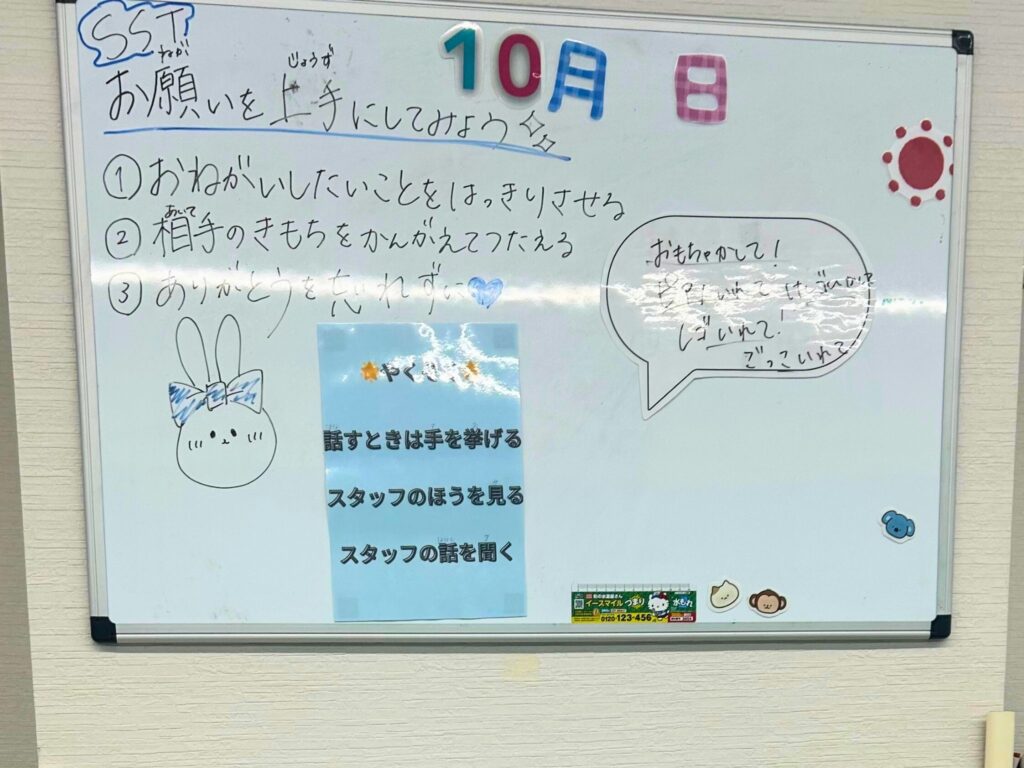 SST
10月 日
お願いを上手にしてみよう
ねが
じょうず
①おねがいしたいことをはっきりさせる
②相手のきもちをかんがえてつたえる
あいて
③ありがとうを忘れずに
おもちゃかして!
いれて
いれて!
ごっこいれて
やくそく
話すときは手を挙げる
スタッフのほうを見る
スタッフの話を聞く
イースマイル
つまり
水もれ
0120-123-456